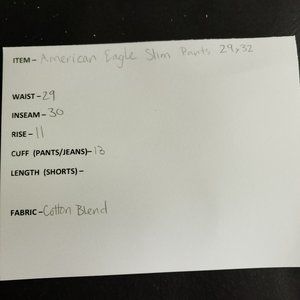 ITEM– American Eagle Slim Pants 29x32
WAIST–29
INSEAM–30
RISE–11
CUFF (PANTS/JEANS)–13
LENGTH (SHORTS)–
FABRIC–Cotton Blend